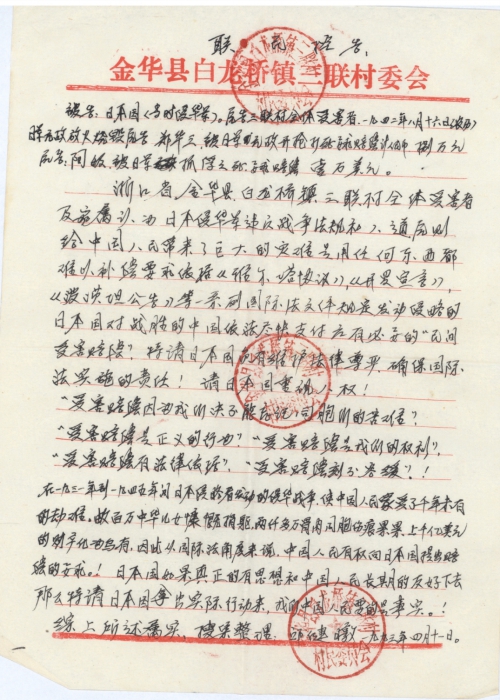 联 民 控 告
金华县白龙桥镇三联村委会
被告:日本国(当时侵华军)。原告三联村全体受害者,一九四二年八月十六日(农历)
日军放火烧毁房屋 郑华三 被日军开枪打死 赔偿 捌万元
原告:阿 被日军抓 赔偿 壹万美元。
浙江省金华县白龙桥镇三联村全体受害者
及家属认为日本侵华军违反战争法规和人道原则
给中国人民带来了巨大的灾难是用任何东西都
难以补偿要求依据《》,《开罗宣言》,
《波茨坦公告》等一系列国际法文件规定发动侵略的
日本国对战胜的中国依法应支付应有必要的"民间
受害赔偿"特请日本国有维护法律尊严确保国际
法实施的责任!请日本国重视人权!
"受害赔偿因为我们决不能忘记同胞们的苦难"
"受害赔偿是正义的行动""受害赔偿是我们的权利",
"受害赔偿有法律依据","受害赔偿刻不容缓"!
在一九三一年到一九四五年间日本侵略者发动的侵华战争,使中国人民蒙受了千年未有
的劫难,数百万中华儿女捐躯,两千多万骨肉同胞伤痕累累,上千亿美元
的财产化为乌有,因此从国际法角度来说,中国人民有权向日本国提出赔
偿的要求。!日本国如果真正的有思想和中国人民长期的友好下去
那么特请日本国拿出实际行动来,我们中国人民要的是事实。!
综上所述属实,搜集整理 一九九三年四月十日。
村民委员会